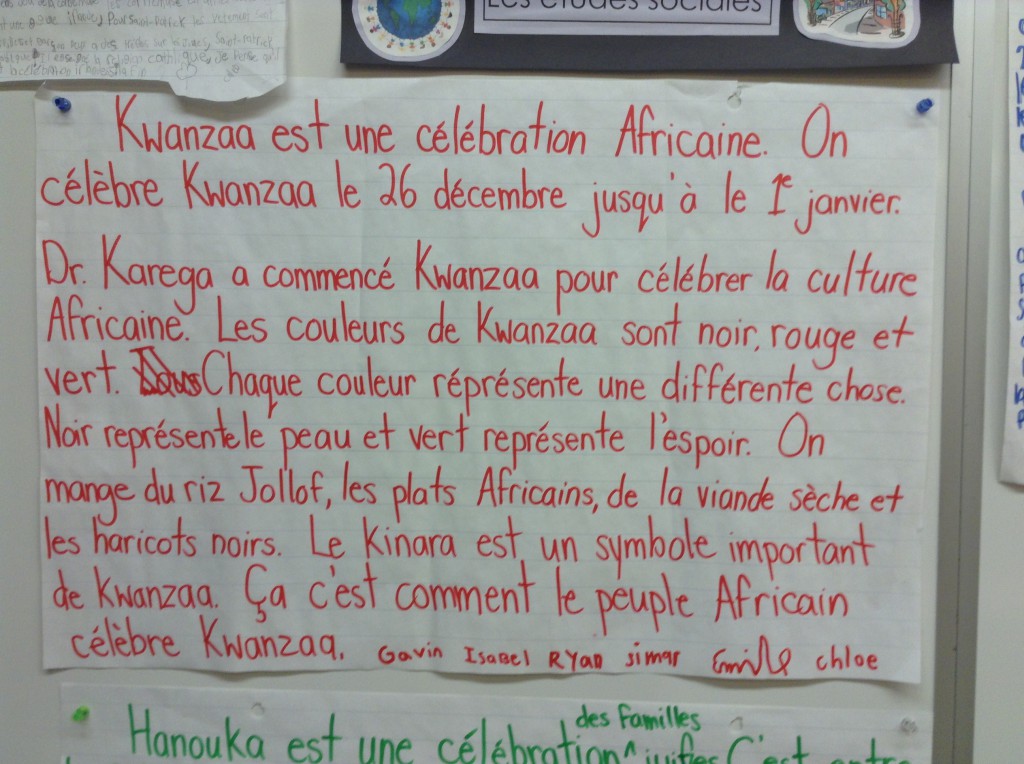 Les études sociales
Kwanzaa est une célébration Africaine. On
célèbre Kwanzaa le 26 décembre jusqu'à le 1e janvier.
Dr. Karega a commencé Kwanzaa pour célébrer la culture
Africaine. Les couleurs de Kwanzaa sont noir, rouge et
vert. Chaque couleur réprésente une différente chose.
Noir représente le peau et vert représente l'espoir. On
mange du riz Jollof, les plats Africains, de la viande sèche et
les haricots noirs. Le Kinara est un symbole important
de Kwanzaa. Ça c'est comment le peuple Africain
célèbre Kwanzaa. Gavin Isabel Ryan simar Emile chloe
des familles
Hanouka est une célébration ^ juifies C'est entre